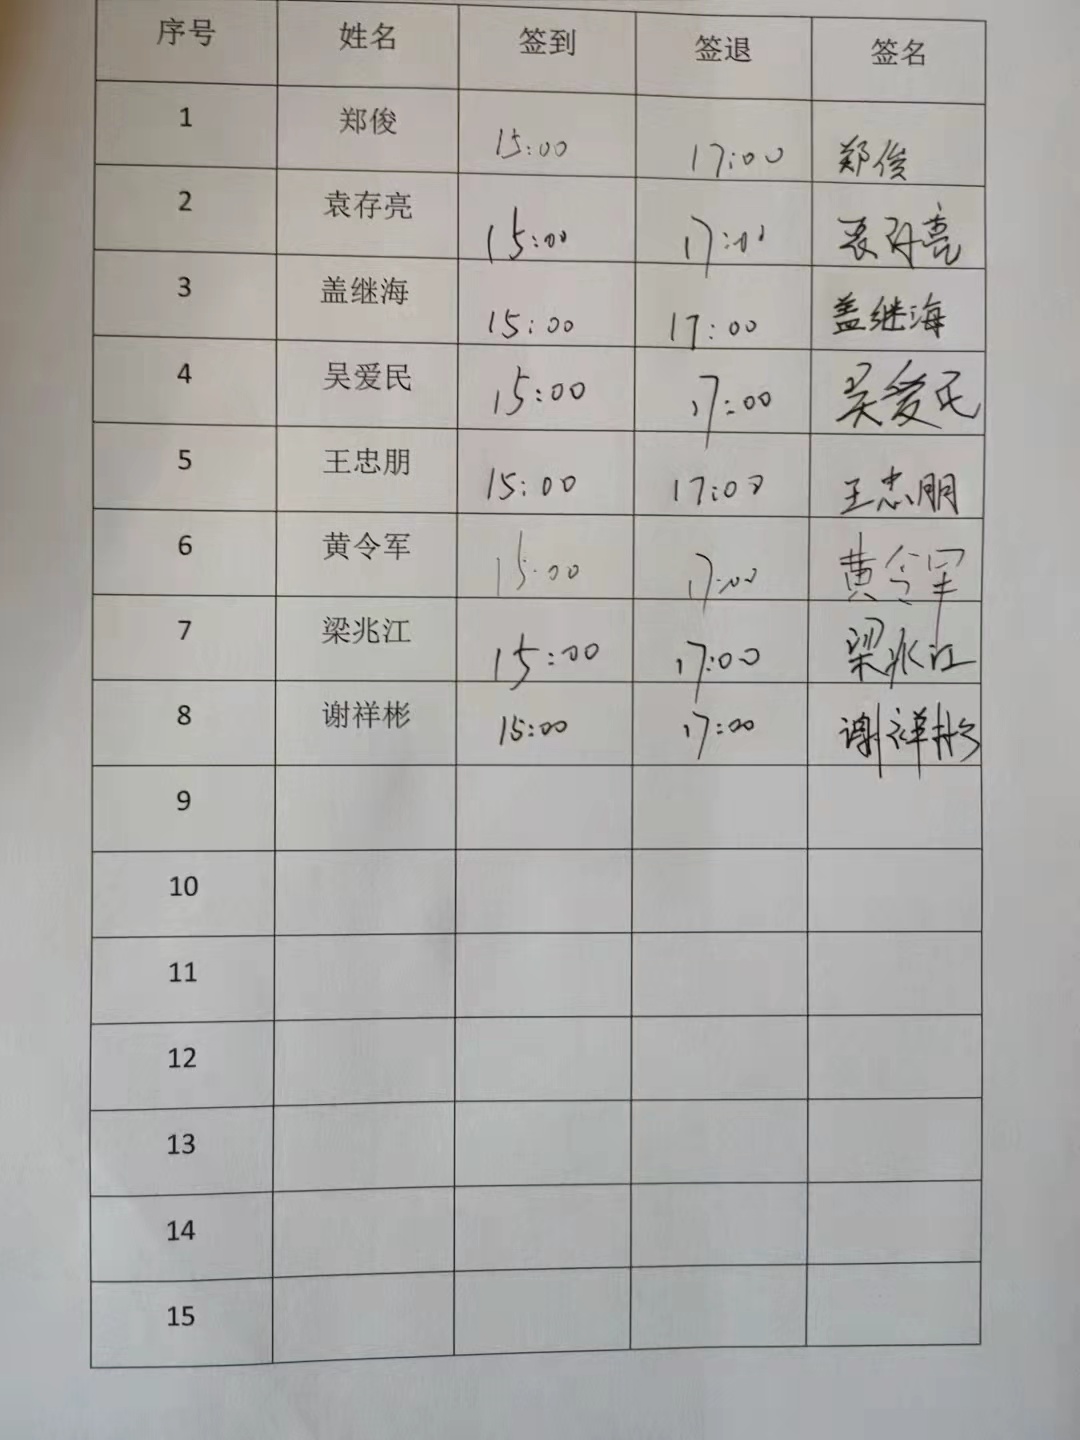 序号 姓名 签到 签退 签名
1 郑俊 15:00 17:00 郑俊
2 袁存亮 15:00 17:00 袁存亮
3 盖继海 15:00 17:00 盖继海
4 吴爱民 15:00 17:00 吴爱民
5 王忠朋 15:00 17:00 王忠朋
6 黄令军 15:00 17:00 黄令军
7 梁兆江 15:00 17:00 梁兆江
8 谢祥彬 15:00 17:00 谢祥彬
9
10
11
12
13
14
15